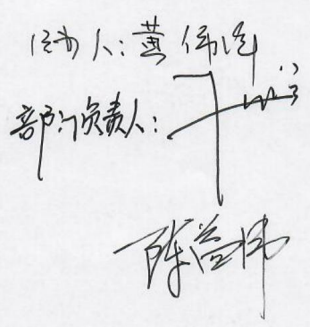 经办人：黄伟泽
部门负责人：
陈益伟